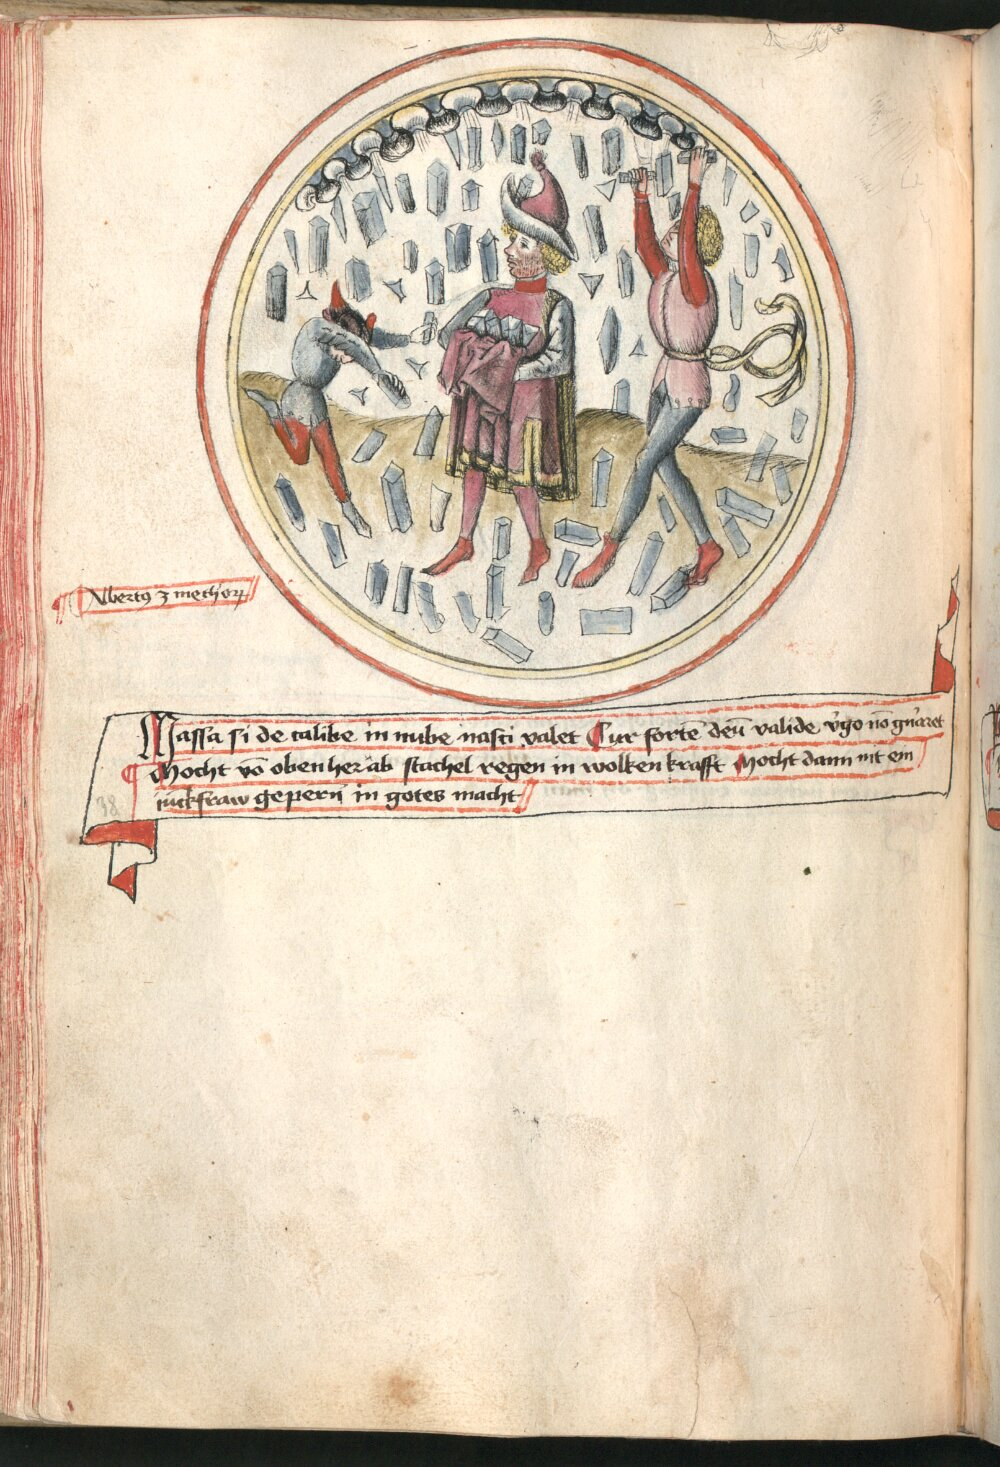 Albertus 3 metheorum
Massa si de calibe in nube nasci valet Cur forte deū valide v'go nō gn̄aret
Mocht vō oben her ab stachel regen in wolken krafft Mocht dann nit ein
iuckfraw gepern in gotes macht
38